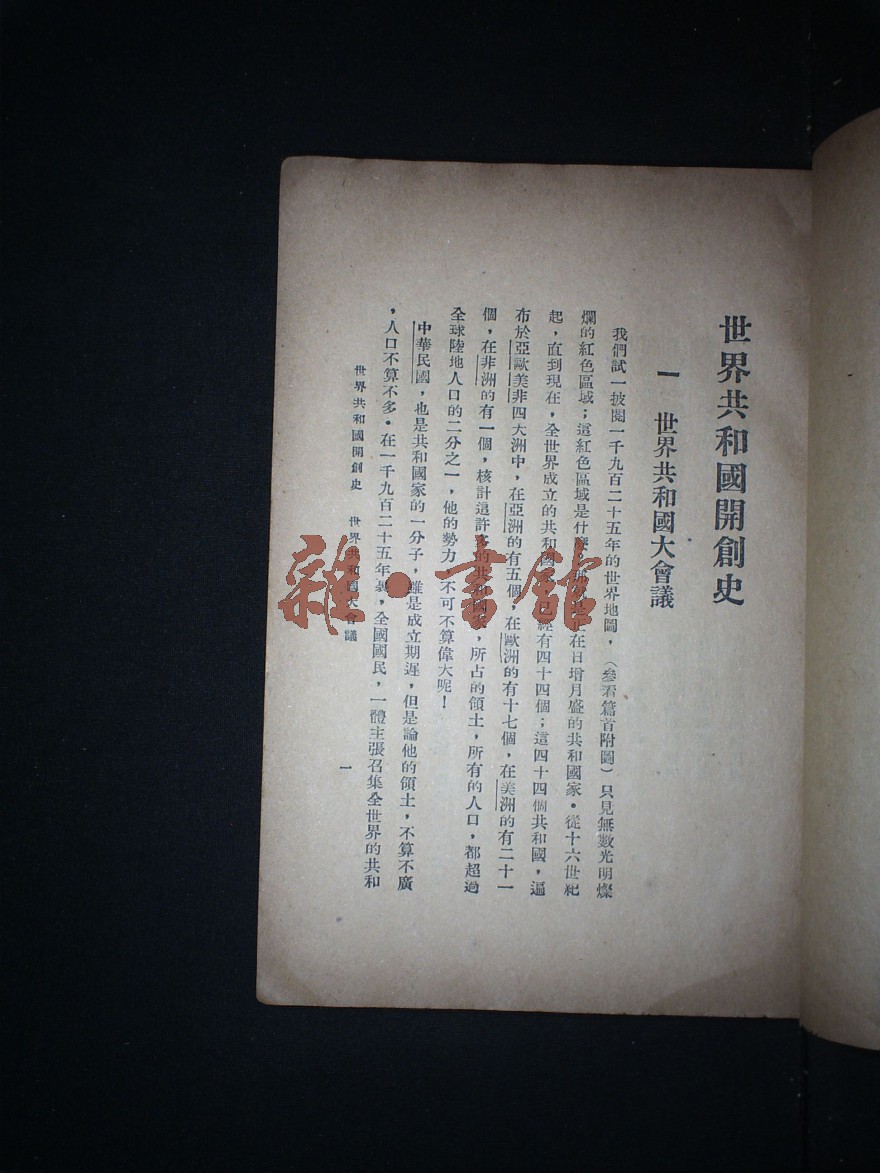 世界共和國開創史
一 世界共和國大會議
我們試一披閱一千九百二十五年的世界地圖，（參看篇首附圖）只見無數光明燦
爛的紅色區域；這紅色區域是什正在日增月盛的共和國家・從十六世紀
起，直到現在，全世界成立的共和國經有四十四個；這四十四個共和國，遍
布於亞歐美非四大洲中，在亞洲的有五個，在歐洲的有十七個，在美洲的有二十一
個，在非洲的有一個，核計這許多的共和國家，所占的領土，所有的人口，都超過
全球陸地人口的二分之一，他的勢力，不可不算偉大呢！
中華民國，也是共和國家的一分子，雖是成立期遲，但是論他的領土，不算不廣
，人口不算不多・在一千九百二十五年裏，全國國民，一體主張召集全世界的共和
世界共和國開創史 世界共和國大會議 一
雜・書館